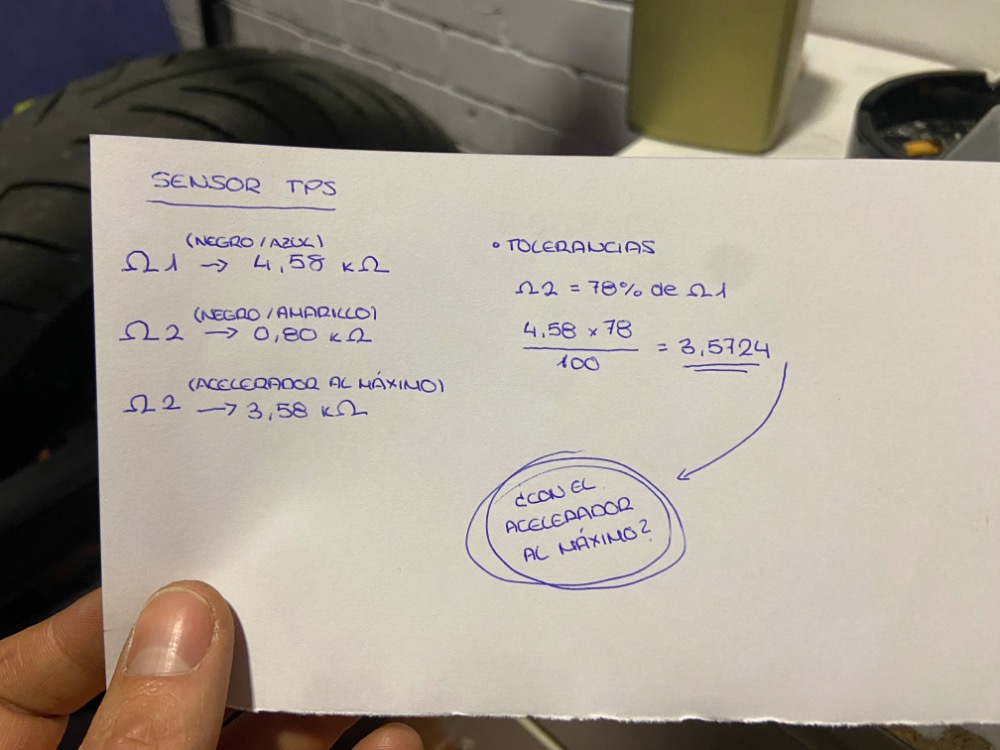 SENSOR TPS
(NEGRO/AZUL)
Ω1 → 4,58 KΩ
(NEGRO/AMARILLO)
Ω2 → 0,80 KΩ
(ACELERADOR AL MÁXIMO)
Ω2 → 3,58 KΩ
• TOLERANCIAS
Ω2 = 78% de Ω1
4,58 × 78
100
= 3,5724
¿CON EL
ACELERADOR
AL MÁXIMO?